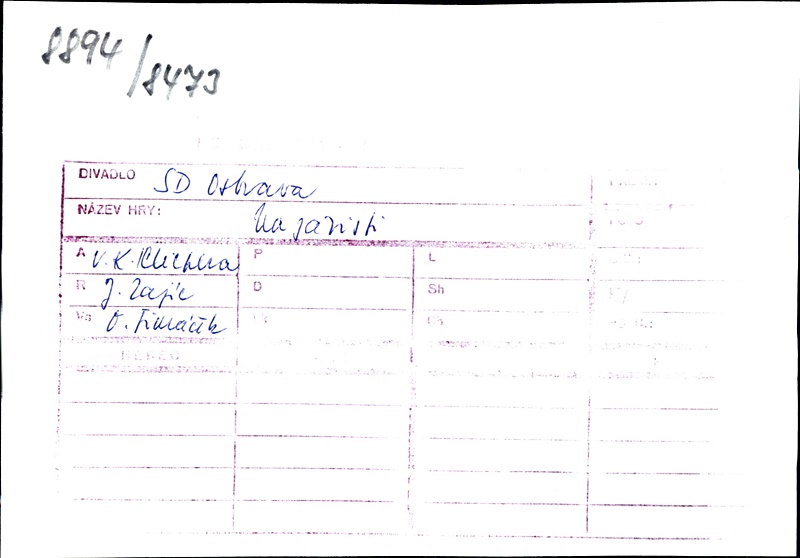 8894/8473
DIVADLO SD Ostrava
NÁZEV HRY: Na zátiší
A V. K. Klicpera P L
R J. Zajíc D Sh
Vs O. Šimáček
HEREC